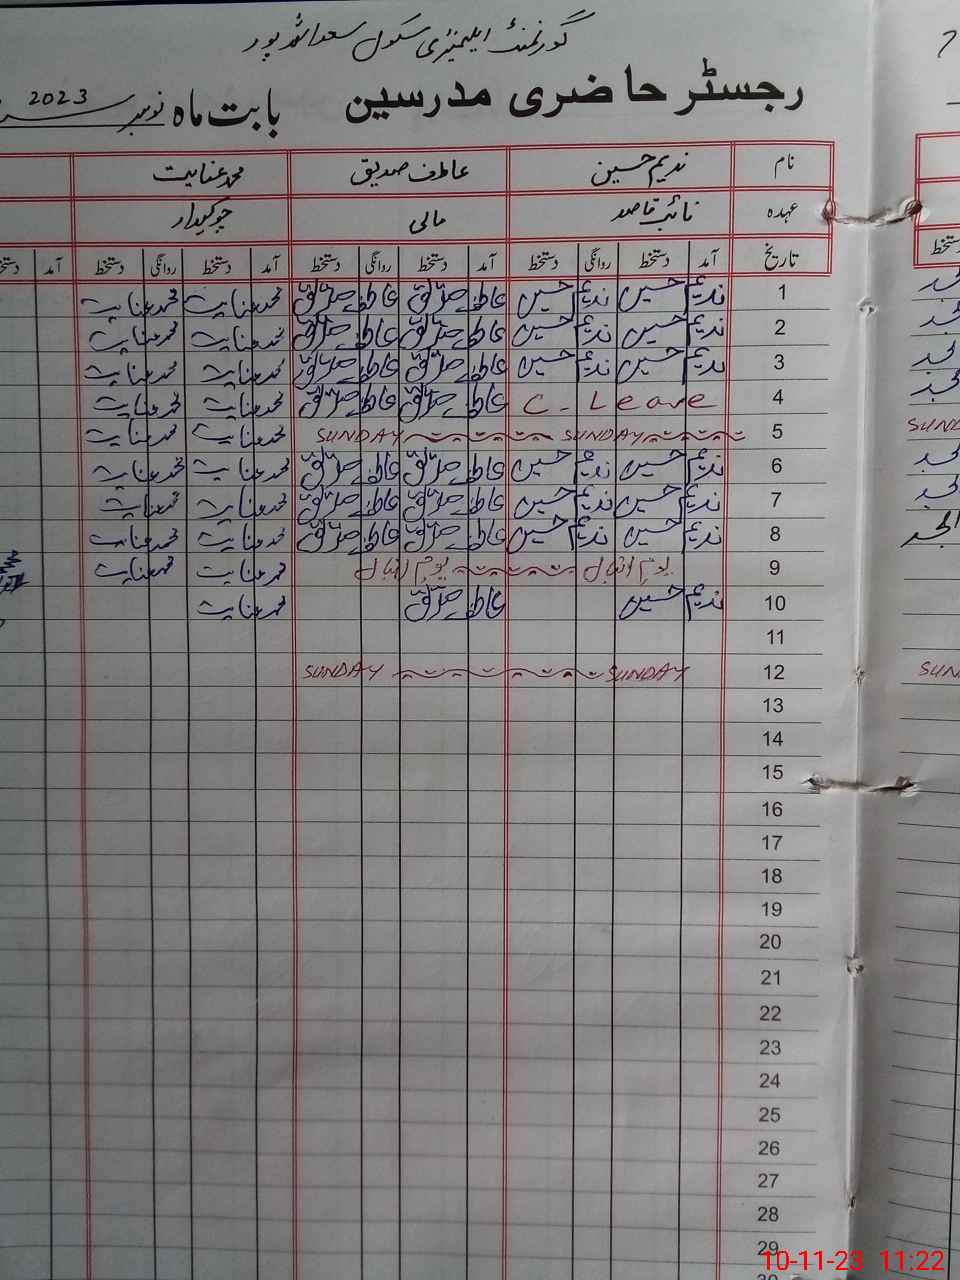 گورنمنٹ ایلیمنٹری سکول سعداللہ پور
رجسٹر حاضری مدرسین بابت ماہ نومبر 2023
نام ندیم حسین عاطف صدیق محمد عنایت
عہدہ نائب قاصد مالی چوکیدار
تاریخ آمد دستخط روانگی دستخط آمد دستخط روانگی دستخط آمد دستخط روانگی دستخط آمد
1 ندیم حسین ندیم حسین عاطف صدیق عاطف صدیق محمد عنایت محمد عنایت
2 ندیم حسین ندیم حسین عاطف صدیق عاطف صدیق محمد عنایت محمد عنایت
3 ندیم حسین ندیم حسین عاطف صدیق عاطف صدیق محمد عنایت محمد عنایت
4 C. Leave عاطف صدیق عاطف صدیق محمد عنایت محمد عنایت
5 SUNDAY SUNDAY محمد عنایت محمد عنایت
6 ندیم حسین ندیم حسین عاطف صدیق عاطف صدیق محمد عنایت محمد عنایت
7 ندیم حسین ندیم حسین عاطف صدیق عاطف صدیق محمد عنایت محمد عنایت
8 ندیم حسین ندیم حسین عاطف صدیق عاطف صدیق محمد عنایت محمد عنایت
9 یوم اقبال یوم اقبال محمد عنایت محمد عنایت
10 ندیم حسین عاطف صدیق محمد عنایت
11
12 SUNDAY SUNDAY
13
14
15
16
17
18
19
20
21
22
23
24
25
26
27
28
29
10-11-23 11:22